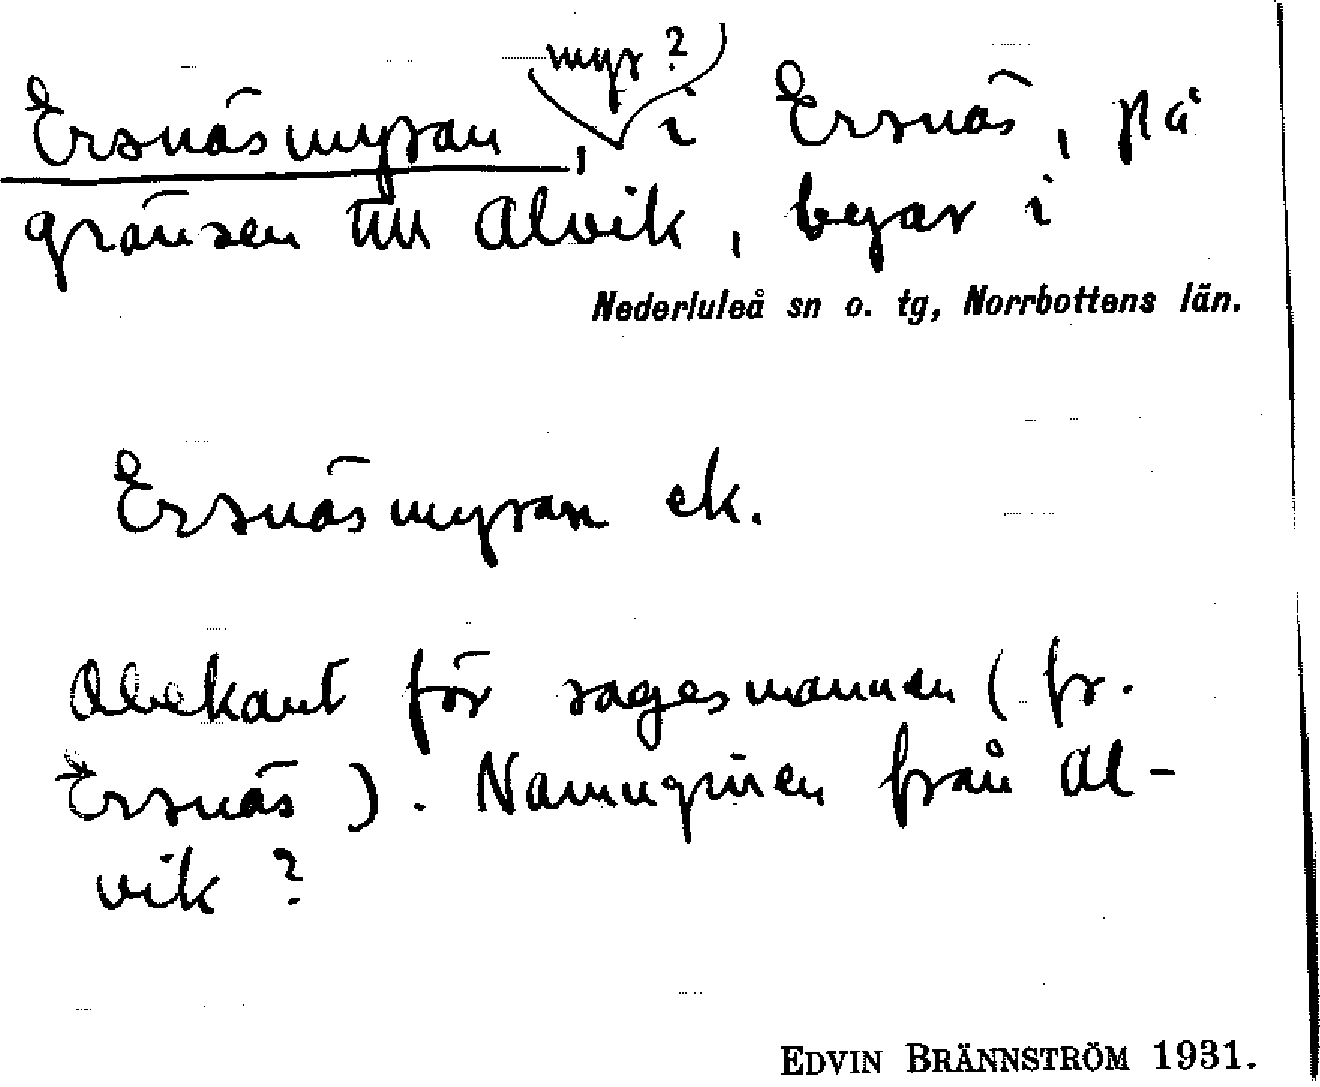 myr ?
Ersnäsmyran, i Ersnäs, på
gränsen till Alvik, byar i
Nederluleå sn o. tg, Norrbottens län.
Ersnäsmyran ek.
Obekant för sagesmannen (fr.
Ersnäs). Namngiven från Al-
vik ?
EDVIN BRÄNNSTRÖM 1931.